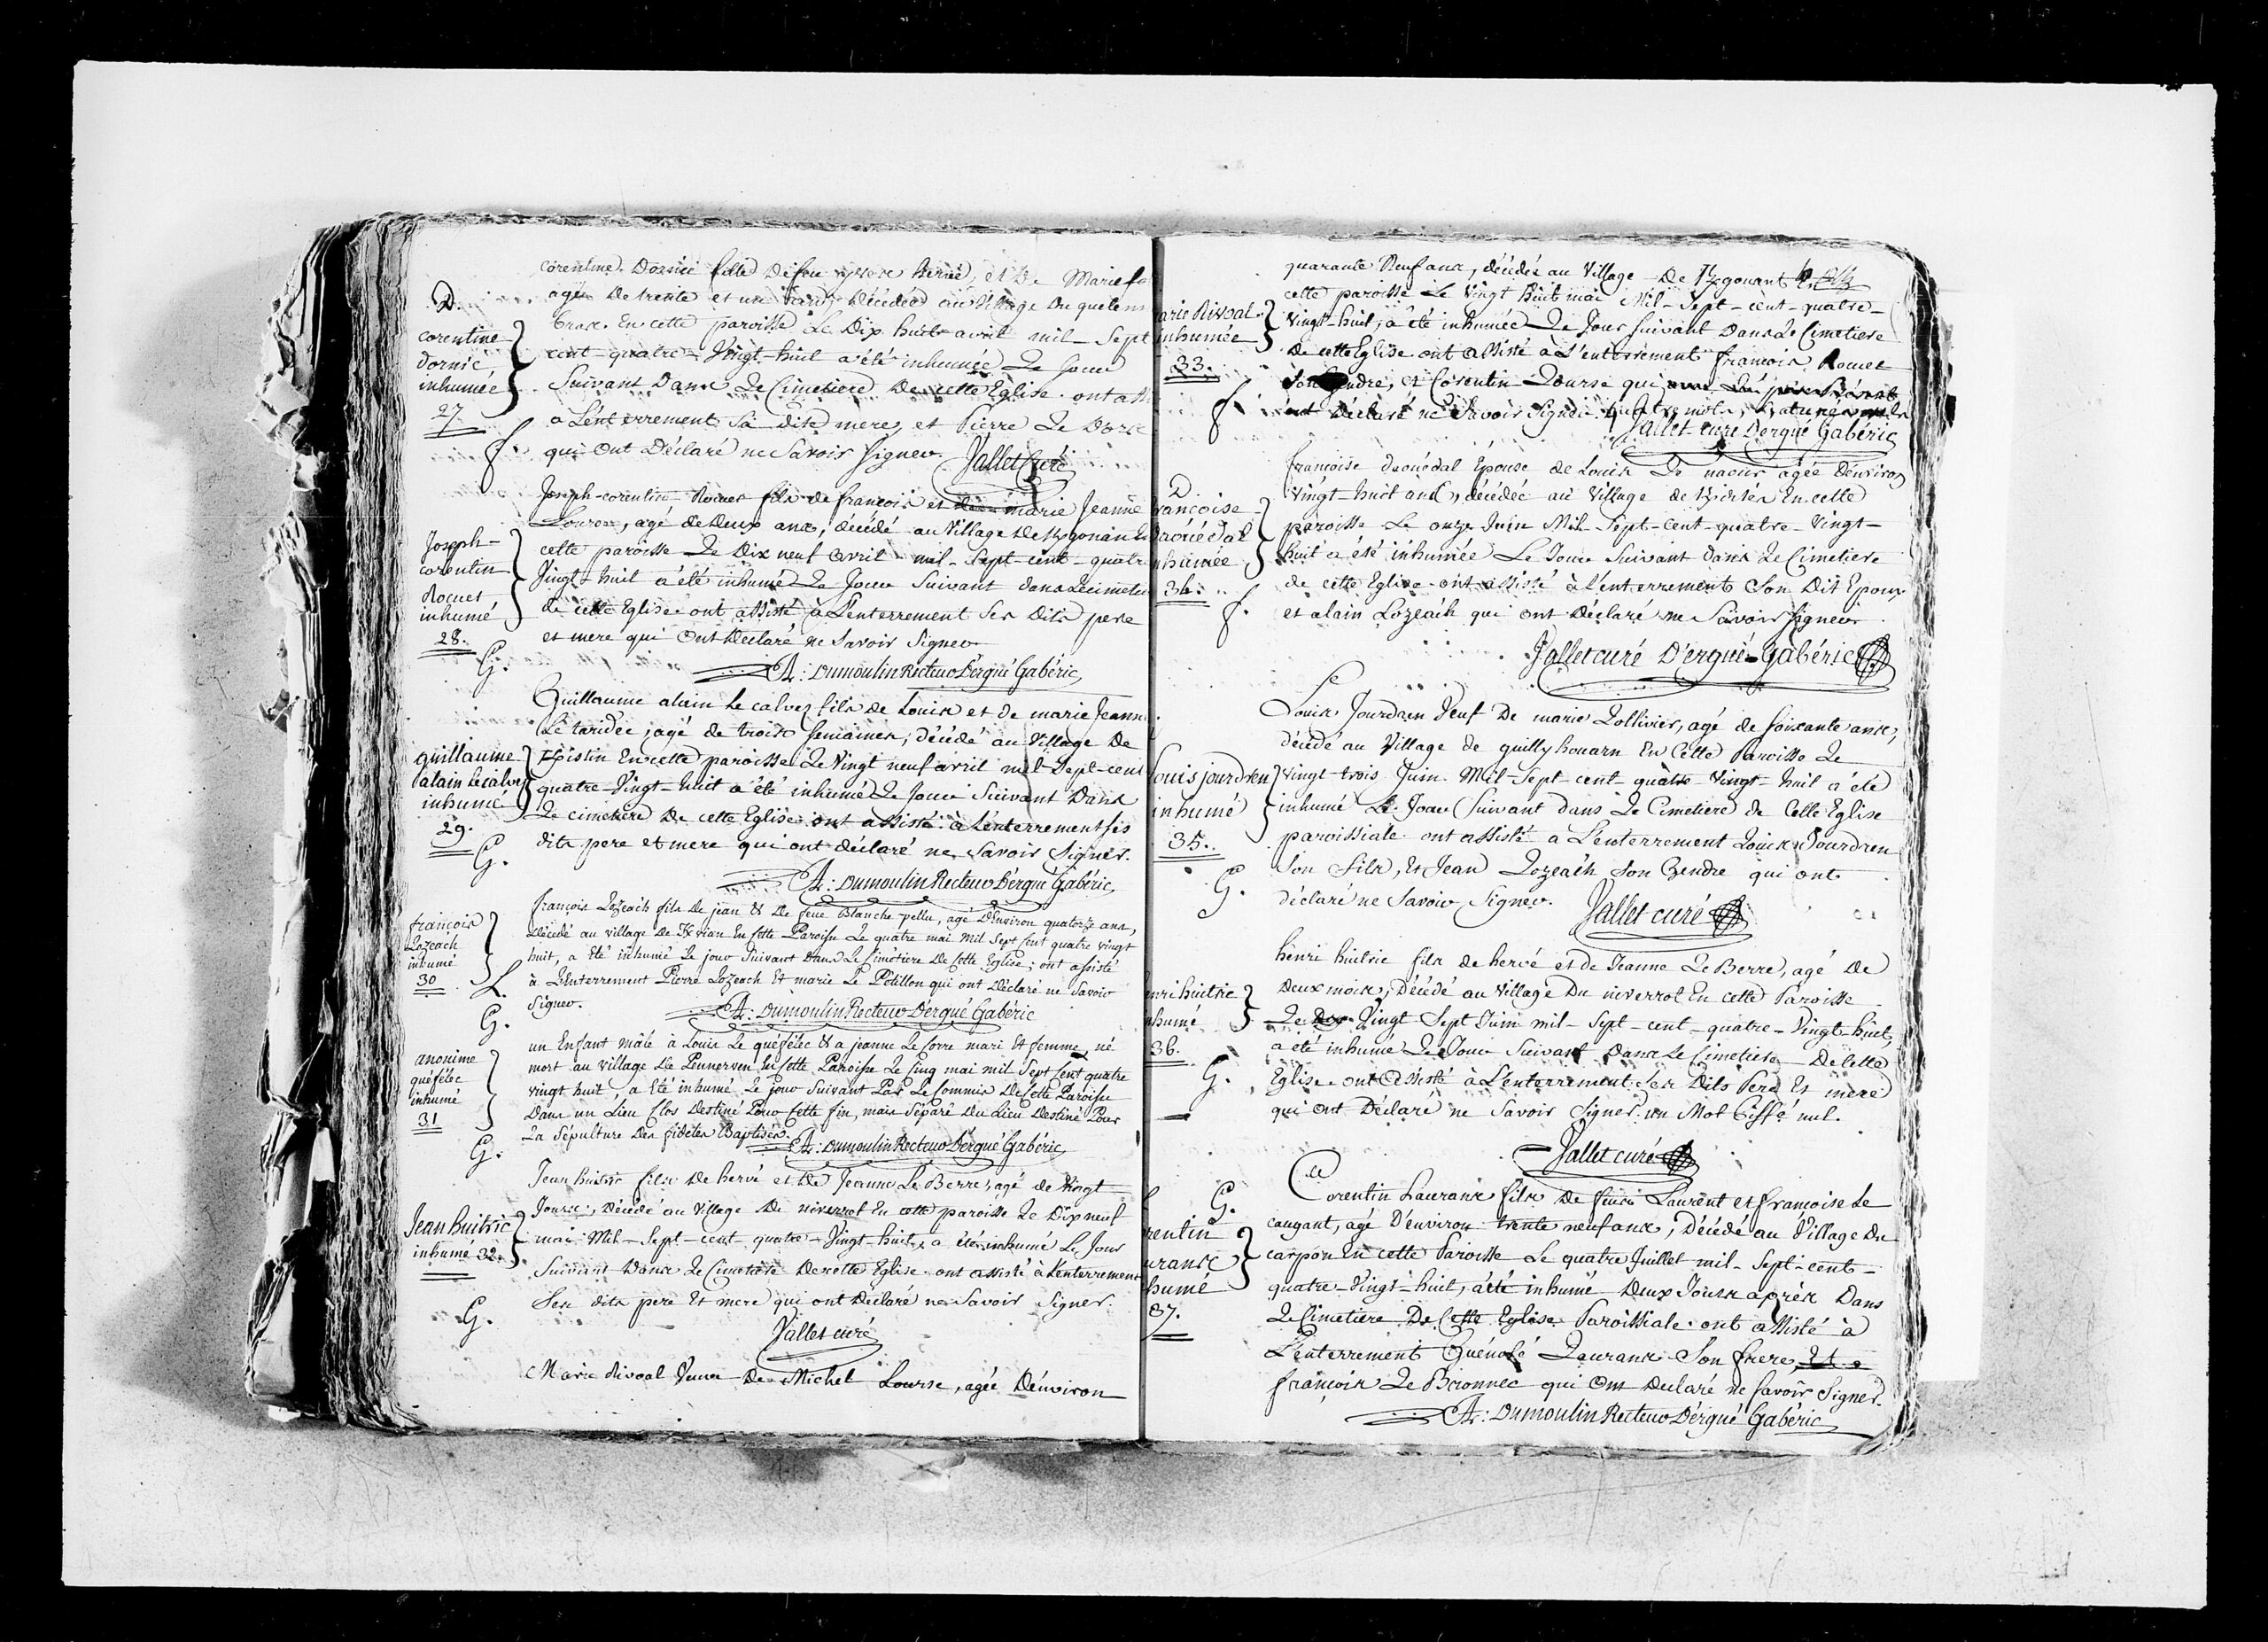 corentine Dornic fille de feu yves hervé, et de Marie
D.
agée de trente et un ans, décédée au Village du quelen
corentine
dornic
inhumée
27.
f.
bras En cette paroisse Le Dix huit avril mil - Sept
cent - quatre - Vingt - huit a été inhumée Le Jour
Suivant Dans Le Cimetiere De cette Eglise. ont assi
a L'enterrement Sa dite mere, et Pierre Le
qui Ont Déclaré ne Savoir Signer. Jallet Curé
Joseph -
corentin
Rocuet
inhumé
28.
G.
Joseph - corentin - Rocuet fils de françois et de marie Jeanne
Lourse, agé de Deux ans, décédé au Village de Kgonan
cette paroisse Le Dix neuf avril mil - Sept - cent - quatre
Vingt - huit a été inhumé Le Jour Suivant dans Le cimetiere
de cette Eglise. ont assisté a L'enterrement Ses Dits pere
et mere qui Ont Declaré ne Savoir Signer
A: Dumoulin Recteur D'ergué Gabéric
guillaume
alain le calvez
inhumé
29.
G.
Guillaume alain Le calvez fils de Louis et de marie Jeanne
Le taridec, agé de trois Semaines, décédé au Village De
Kistin En cette paroisse Le Vingt neuf avril mil Sept - cent
quatre - Vingt - huit a été inhumé Le Jour Suivant Dans
Le cimetiere De cette Eglise. ont assisté à L'enterrement ses
dits pere et mere qui ont déclaré ne Savoir Signer.
A: Dumoulin Recteur D'ergué Gabéric
françois
Lozeach
inhumé
30
L.
G.
françois Lozeach fils De jean & De feue Blanche pellu, agé D'Environ quatorze ans,
décédé au village De Kvrian En Cette Paroisse Le quatre mai mil Sept Cent quatre vingt
huit, a Eté inhumé Le jour Suivant Dans Le Cimétiere De Cette Eglise; ont assisté
à L'Enterrement Pierre Lozeach Et marie Le Pétillon qui ont Déclaré ne Savoir
Signer. A: Dumoulin Recteur D'ergué Gabéric
anonime
quéfélec
inhumé
31
G.
un Enfant mâle à Louis Le quéfélec & a jeanne Le Corre mari & femme, né
mort au village De Pennerven En Cette Paroisse Le Cinq mai mil Sept Cent quatre
vingt huit, a Eté inhumé Le jour Suivant Par Le Commis De Cette Paroisse
Dans un Lieu Clos Destiné Pour Cette fin, mais Séparé Du Lieu Destiné Pour
La Sépulture Des fidèles Baptisés. A: Dumoulin Recteur D'ergué Gabéric
Jean huitric
inhumé 32.
G.
Jean huitric fils De hervé et De Jeanne Le Berre, agé de Vingt
Jours, Décédé au Village De niverrot En cette paroisse Le Dix neuf
mai Mil - Sept - cent - quatre - Vingt - huit, a été inhumé Le Jour
Suivant Dans Le Cimetiere De cette Eglise. ont assisté à L'enterrement
Ses dits pere Et mere qui ont Déclaré ne Savoir Signer.
Jallet curé
Marie Rivoal Veuve De Michel Lourse, agée D'environ
quarante Neuf ans, décédée au Village De Kgonant
arie Rivoal
inhumée
33.
f.
cette paroisse Le Vingt huit mai Mil - Sept - cent - quatre -
Vingt - huit, a été inhumée Le Jour Suivant Dans Le Cimetiere
De cette Eglise. ont assisté à L'enterrement françois Rocuet
Son Gendre, et Corentin Lourse qui
ont Déclaré ne Savoir Signer. quatre mots
Jallet curé D'ergué Gabéric
D.
rançoise
raouédal
nhumée
34.
f.
françoise draouédal Epouse de Louis Le naour agée D'environ
Vingt - huit ans, décédée au Village de En cette
paroisse Le onze Juin Mil - Sept - cent - quatre - Vingt -
huit a été inhumée Le Jour Suivant dans Le Cimetiere
de cette Eglise. ont assisté à L'enterrement Son Dit Epoux
et alain Lozeach qui ont Déclaré ne Savoir Signer
Jallet curé D'ergué - Gabéric
ouis jourdren
inhumé
35.
G.
Louis Jourdren Veuf De marie Lollivier, agé de Soixante ans,
décédé au Village de quilly houarn En Cette Paroisse Le
Vingt - trois Juin Mil - Sept - cent - quatre - Vingt - huit a été
inhumé Le Jour Suivant dans Le Cimetiere de Cette Eglise
paroissiale. ont assisté a L'enterrement Louis Jourdren
Son Fils, Et Jean Lozeach Son Gendre qui ont
déclaré ne Savoir Signer. Jallet curé
enri huitric
nhumé
36.
G.
henri huitric fils de hervé et de Jeanne Le Berre, agé De
Deux mois, Décédé au Village Du niverrot En cette Paroisse
Le Vingt Sept Juin mil - Sept - cent - quatre - Vingt - huit,
a été inhumé Le Jour Suivant Dans Le Cimetiere De Cette
Eglise. ont assisté à L'enterrement Ses Dits Pere Et mere
qui ont Déclaré ne Savoir Signer. un Mot biffé nul.
Jallet curé
G.
rentin
aurans
humé
37.
Corentin Laurans fils De feu Laurent et françoise Le
caugant, agé D'environ trente neuf ans, Décédé au Village Du
carpon En cette Paroisse Le quatre Juillet mil - Sept - cent -
quatre - Vingt - huit, a été inhumé Deux Jours après Dans
Le Cimetiere De Cette Eglise Paroissiale. ont assisté à
L'enterrement Guénolé Laurans Son frere, Et
françois Le Bronnec qui Ont Declaré ne Savoir Signer.
A: Dumoulin Recteur D'ergué Gabéric